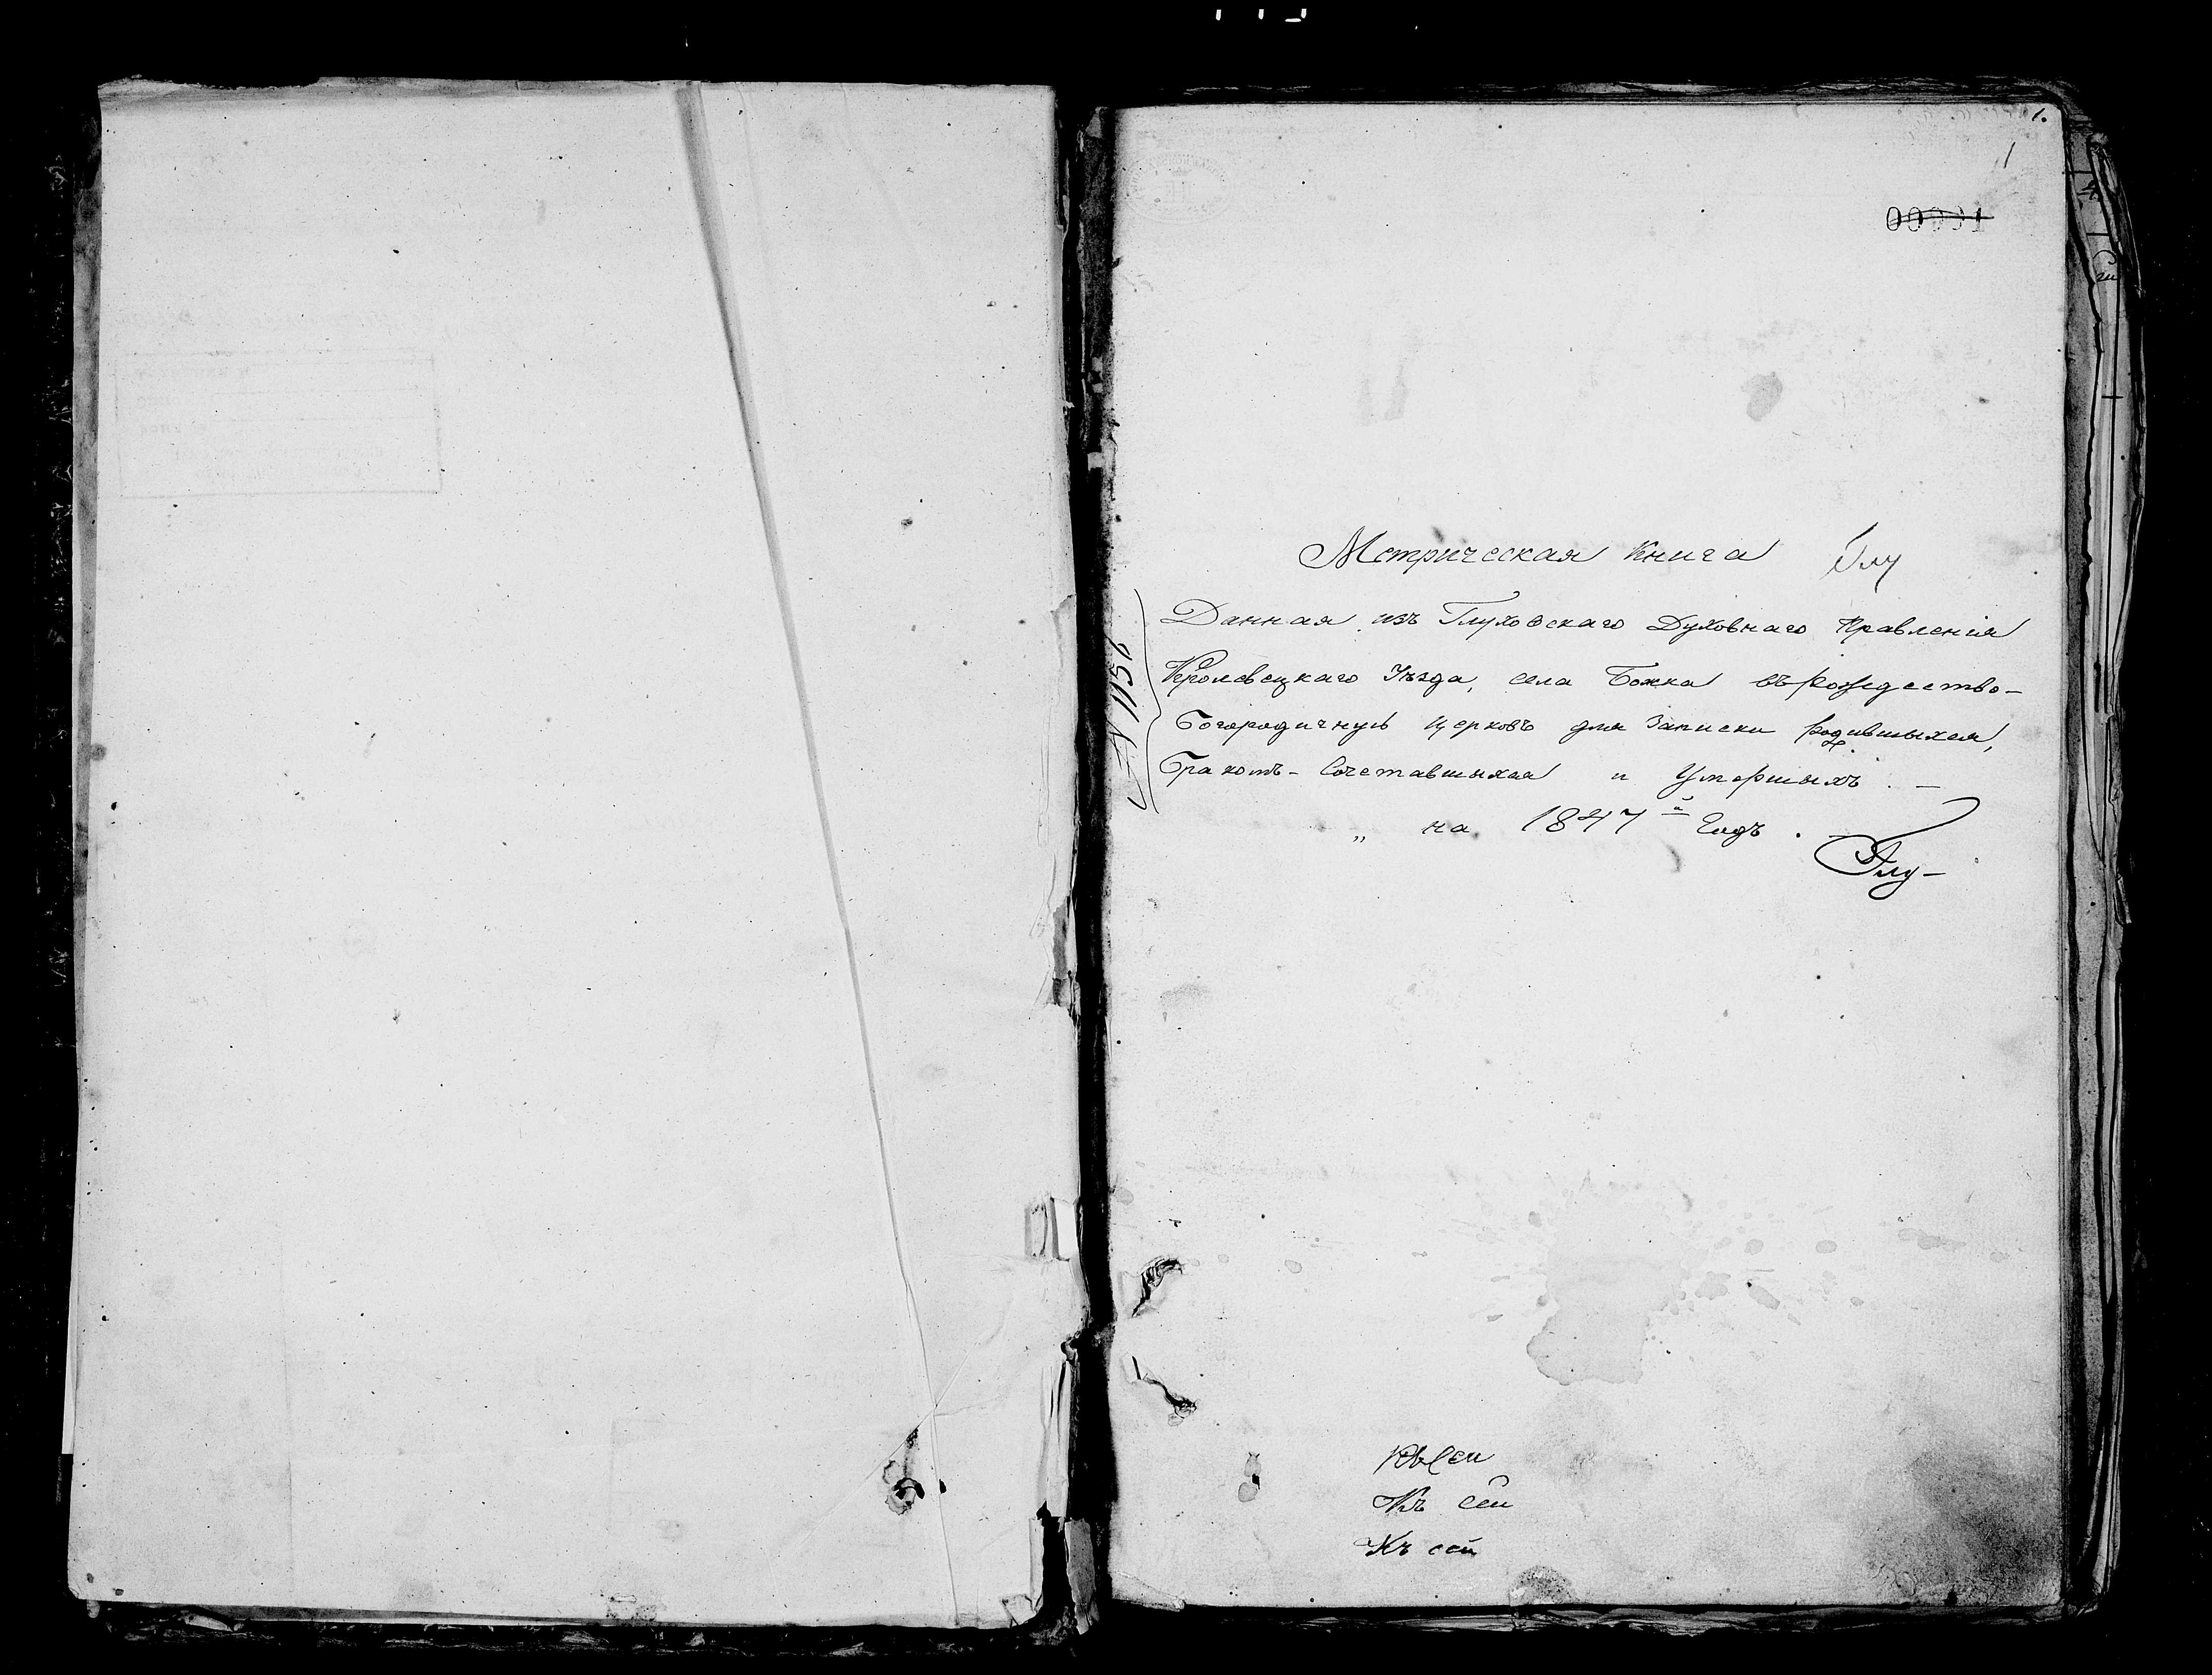 1.
1
00001
Метрическая Книга Глу
Данная изъ Глуховскаго Духовнаго Правленія
Кролевецкаго Уѣзда, села Божка въ Рождество-
Богородичную церковь для записки родившыхся,
бракомъ-сочетавшыхся и Умершыхъ. —
„ на 1847й Годъ.
Глу-
№ 1156
Къ сей
Къ сей
Къ сей